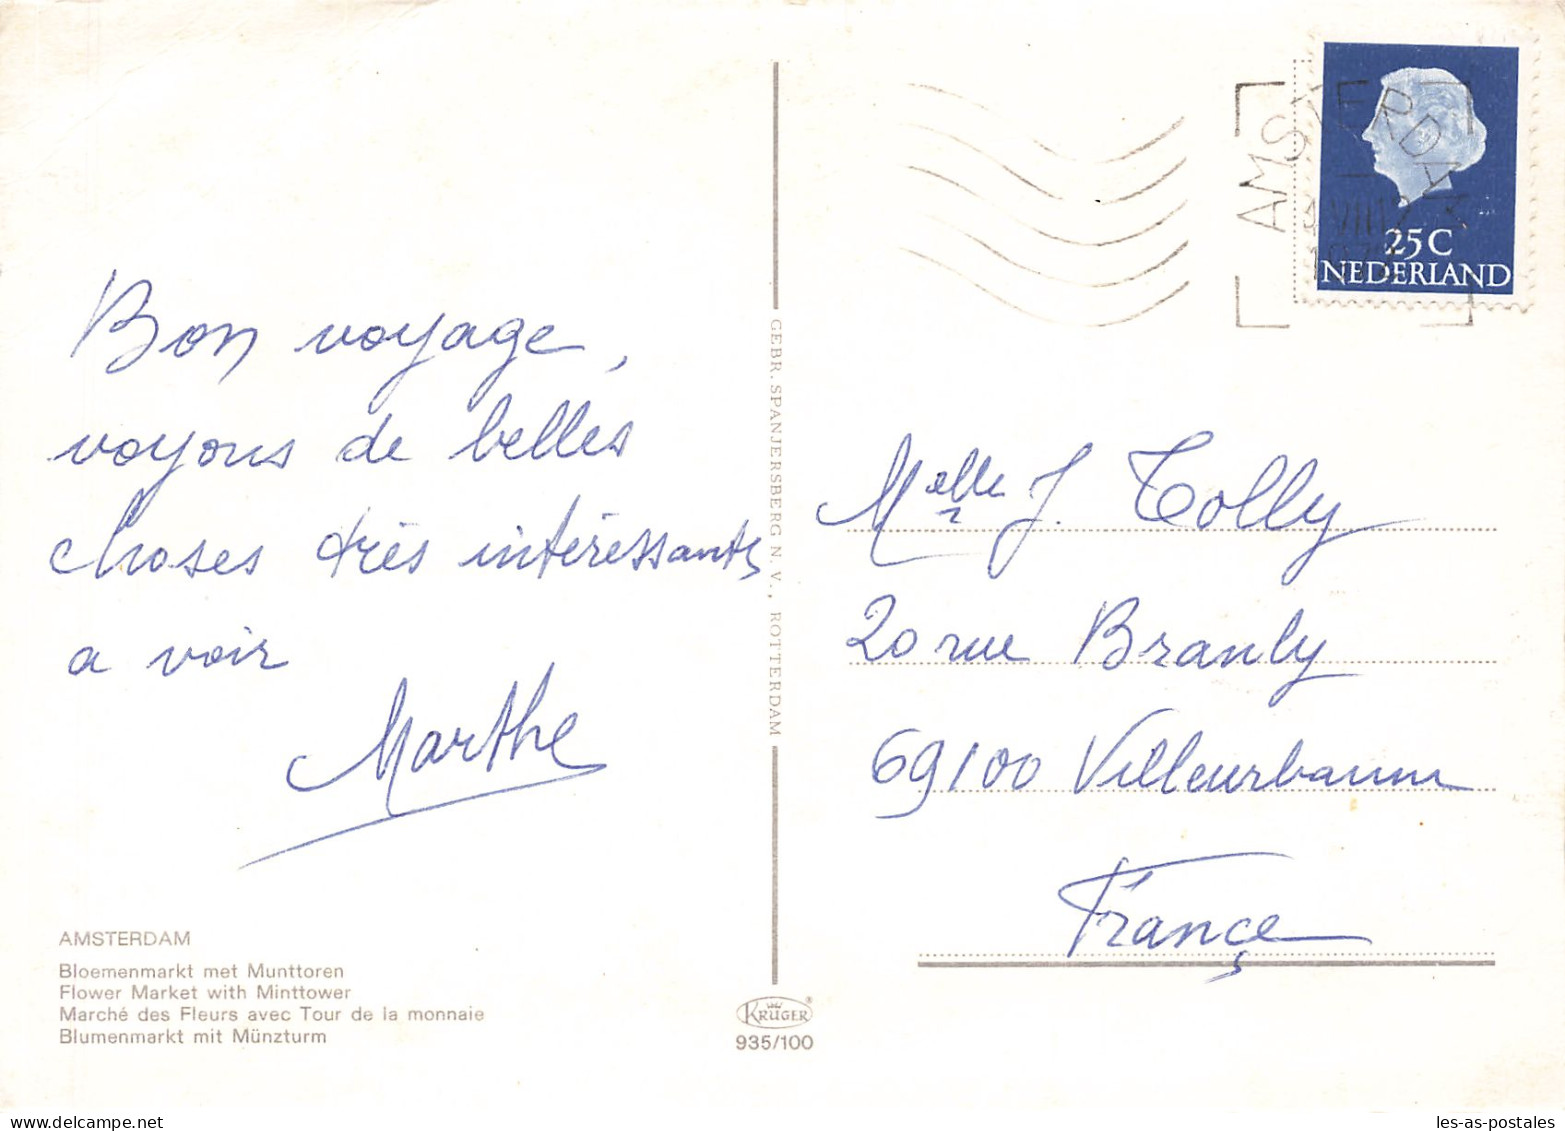 Bon voyage,
voyons de belles
choses très intéressants
a voir
Marthe
AMSTERDAM
Bloemenmarkt met Munttoren
Flower Market with Minttower
Marché des Fleurs avec Tour de la monnaie
Blumenmarkt mit Münzturm
GEBR. SPANJERSBERG N.V., ROTTERDAM
KRÜGER®
935/100
AMSTERDAM
25C
NEDERLAND
Melle J. Tolly
20 rue Branly
69100 Villeurbanne
França
www.delcampe.net
les-as-postales